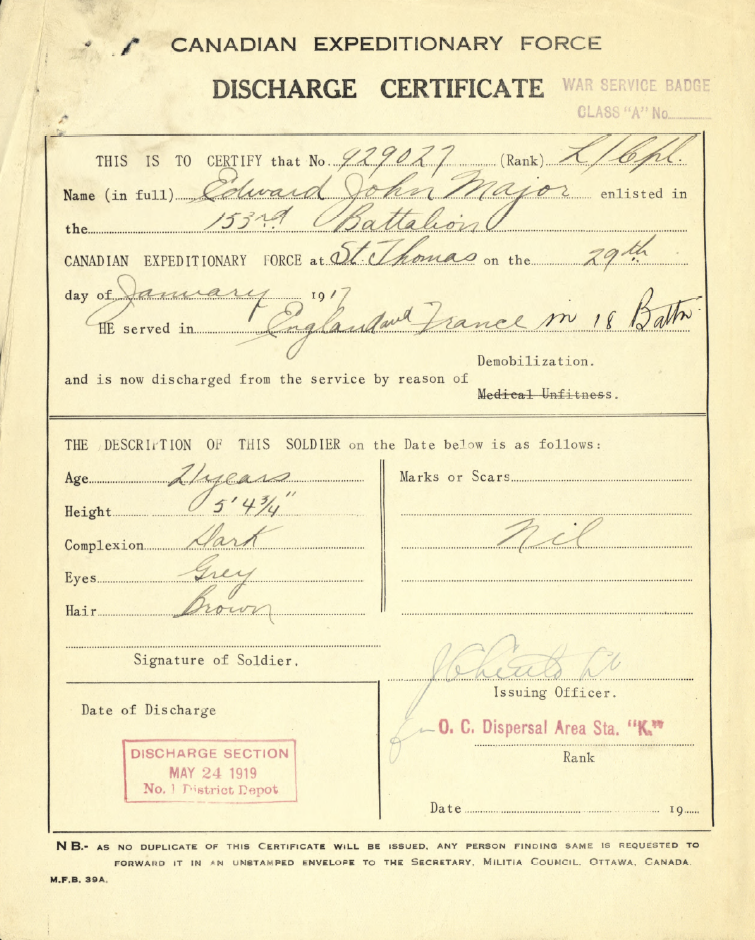 CANADIAN EXPEDITIONARY FORCE
DISCHARGE CERTIFICATE
WAR SERVICE BADGE
CLASS "A" No
THIS IS TO CERTIFY that No. 929027 (Rank) L/Cpl.
Name (in full) Edward John Major enlisted in
the 153rd Battalion
CANADIAN EXPEDITIONARY FORCE at St. Thomas on the 29th
day of January 1917
HE served in England and France in 18 Battn
Demobilization.
and is now discharged from the service by reason of
Medical Unfitness.
THE DESCRIPTION OF THIS SOLDIER on the Date below is as follows:
Age 21 years
Height 5' 4 3/4"
Complexion Dark
Eyes Grey
Hair Brown
Marks or Scars
Nil
Signature of Soldier.
Issuing Officer.
for O. C. Dispersal Area Sta. "K."
Rank
Date 19
Date of Discharge
DISCHARGE SECTION
MAY 24 1919
No. 1 District Depot
NB.- AS NO DUPLICATE OF THIS CERTIFICATE WILL BE ISSUED, ANY PERSON FINDING SAME IS REQUESTED TO
FORWARD IT IN AN UNSTAMPED ENVELOPE TO THE SECRETARY, MILITIA COUNCIL, OTTAWA, CANADA.
M.F.B. 39A.